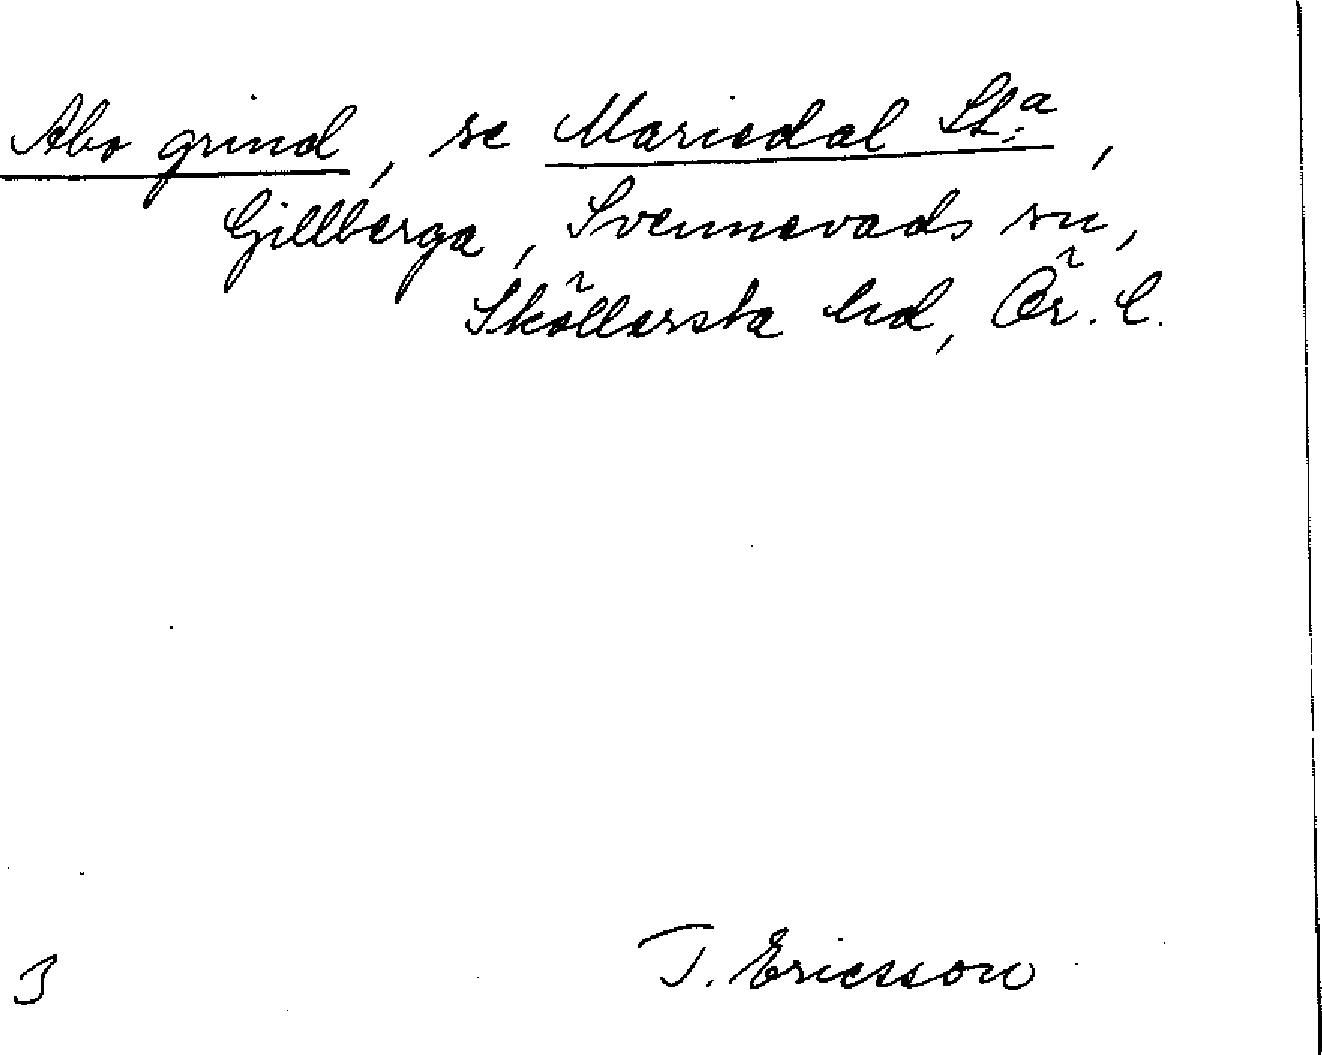 Abo grind, se Mariedal St:a,
Gillberga, Svennevads sn,
Sköllersta hd, Ör. l.
T. Ericsson